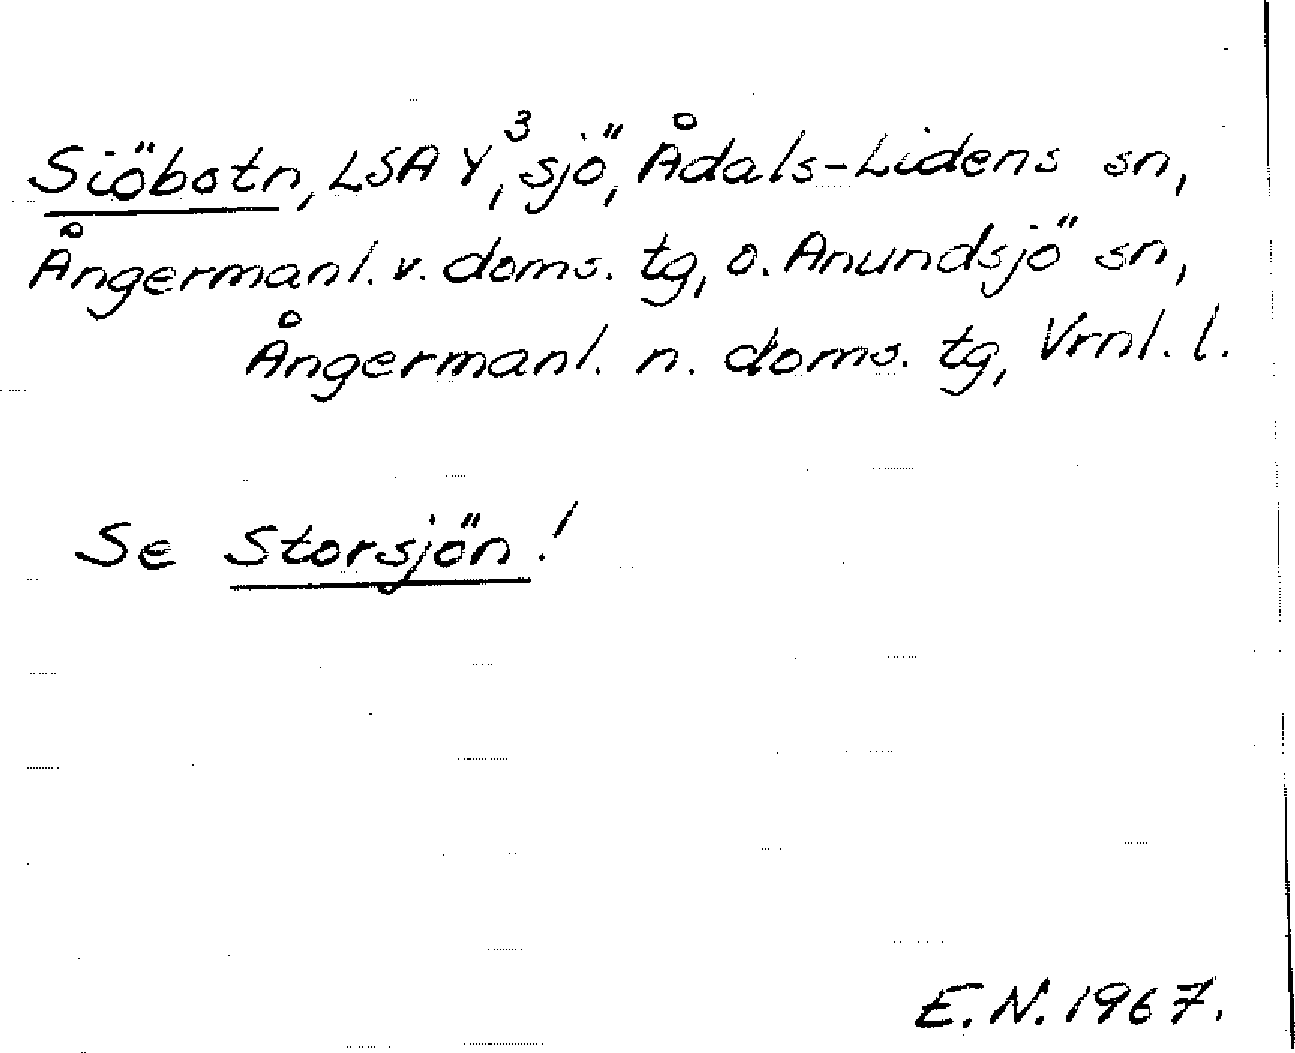 Siöbotn, LSA Y³, sjö, Ådals-Lidens sn,
Ångermanl. v. doms. tg, o. Anundsjö sn,
Ångermanl. n. doms. tg, Vrnl. l.
Se Storsjön!
E.N. 1967.